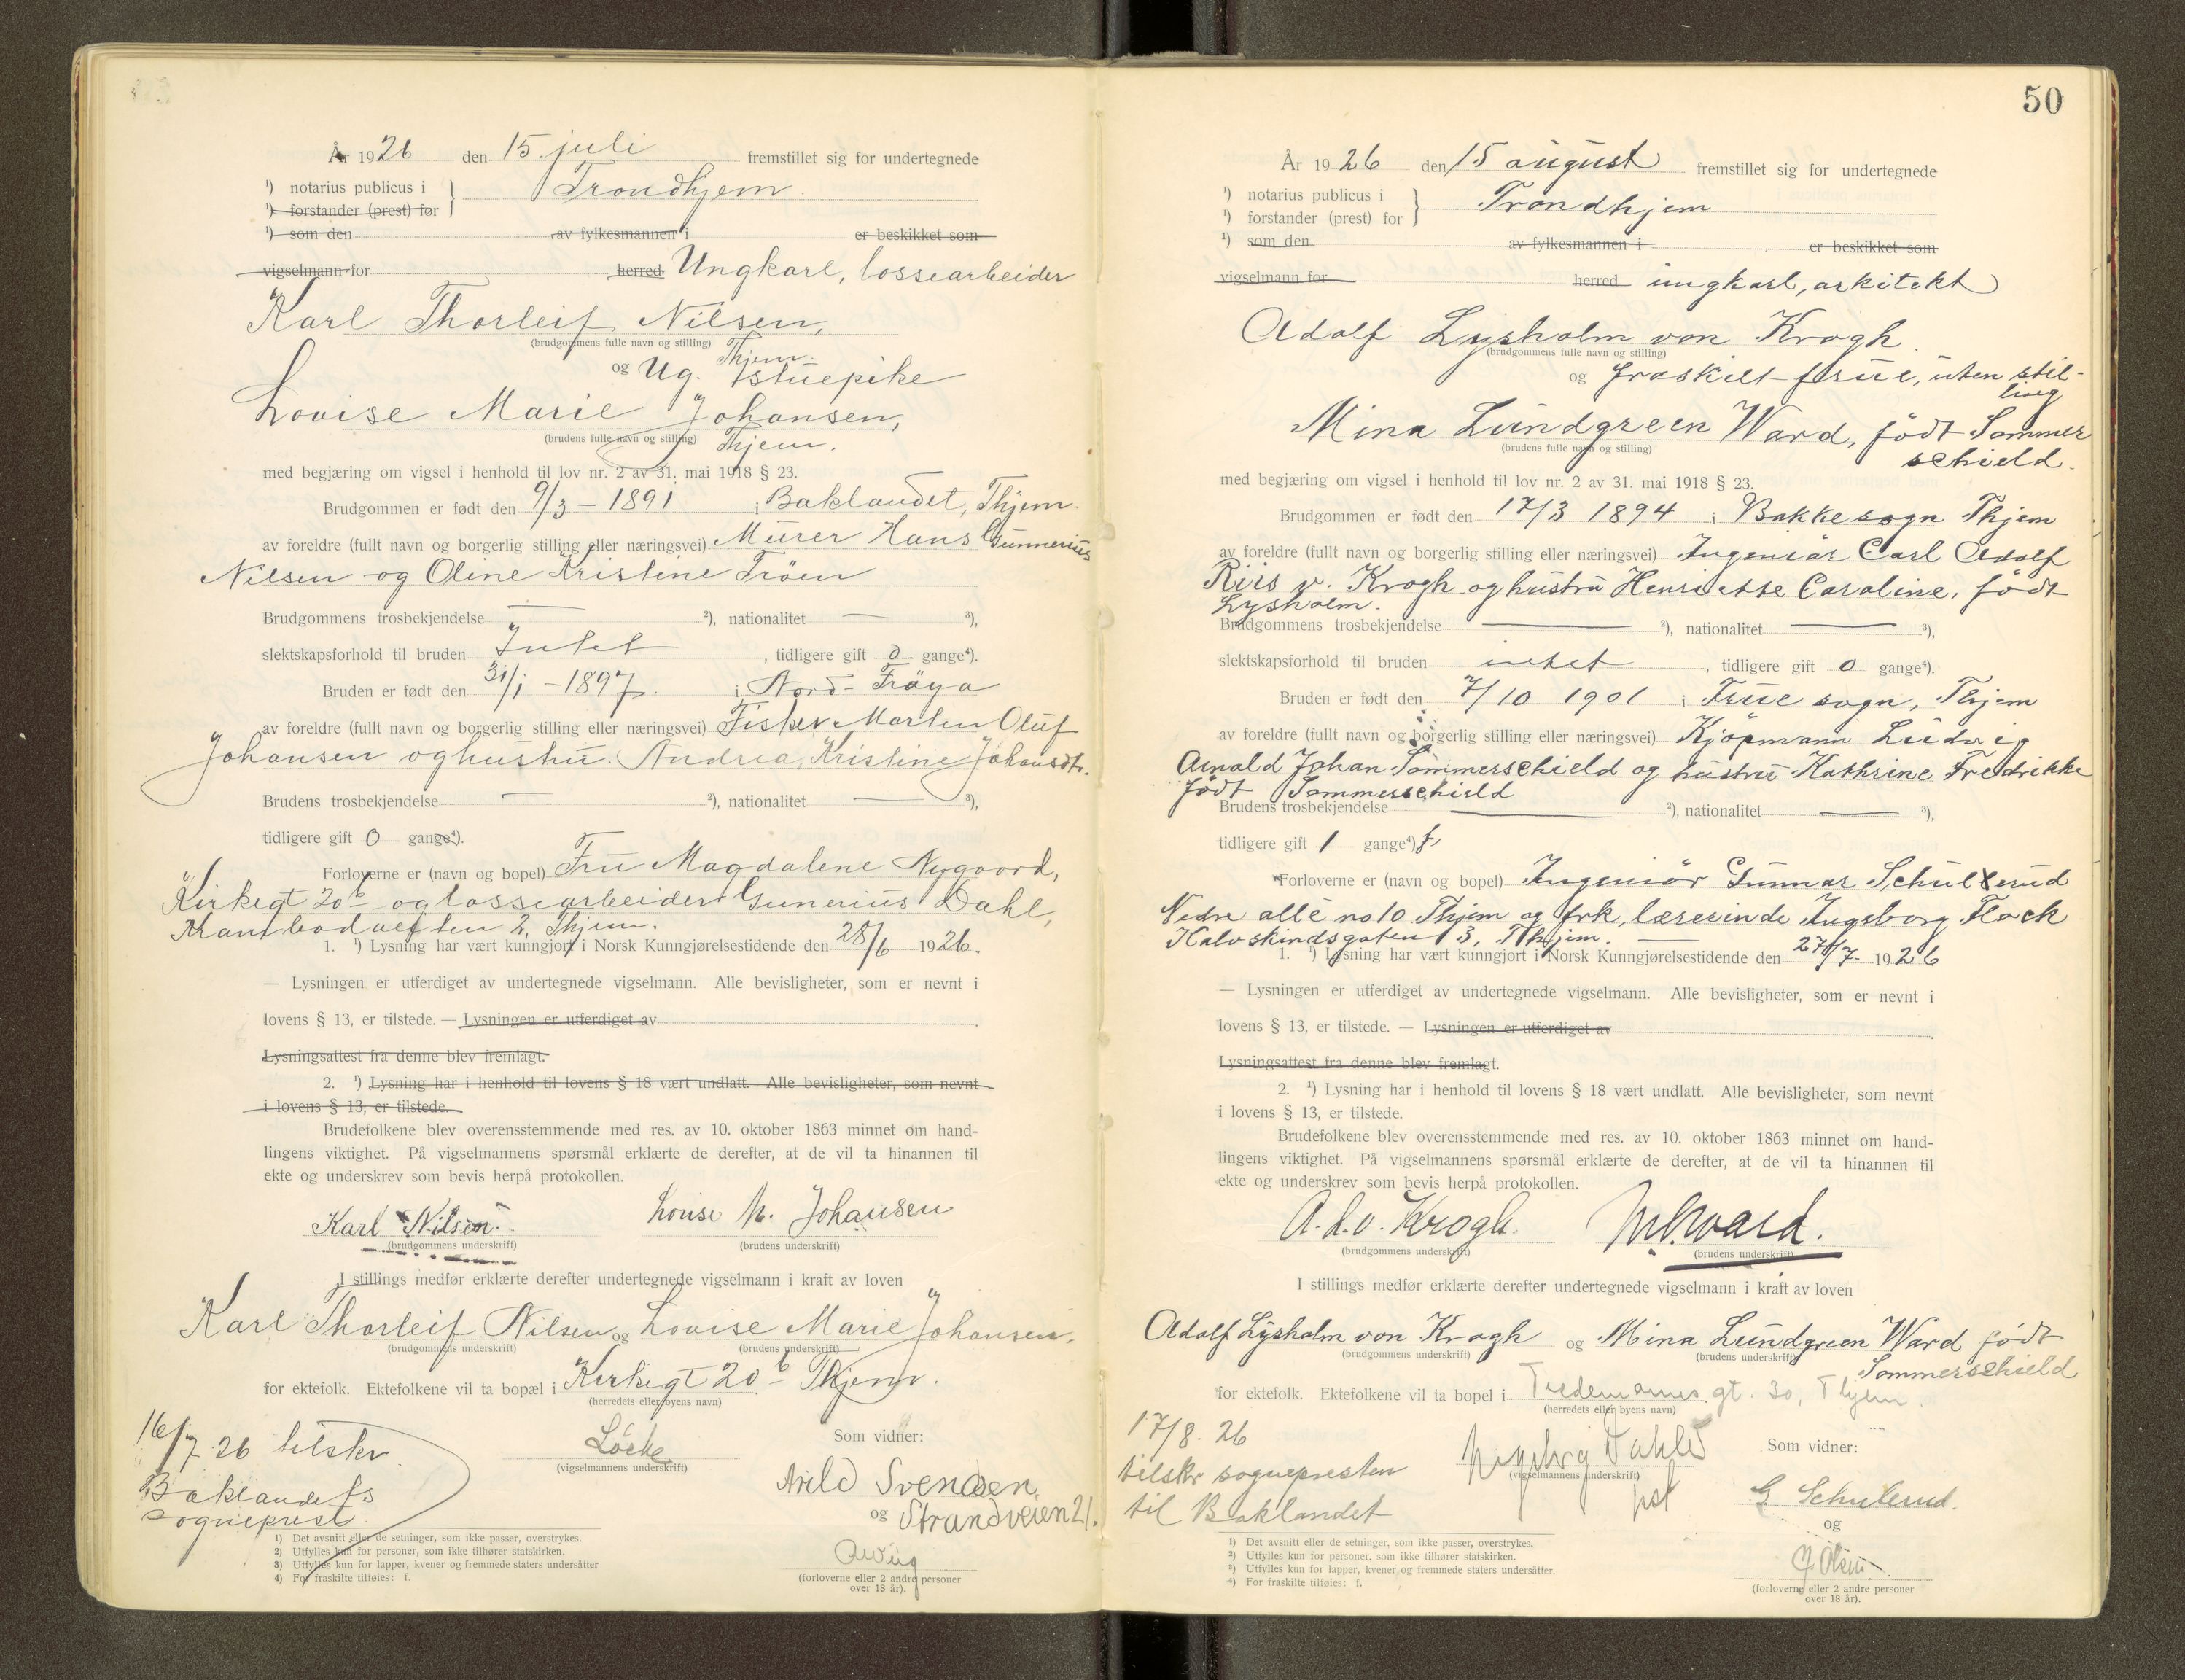 År 1926 den 15. juli fremstillet sig for undertegnede
¹) notarius publicus i } Trondhjem
¹) forstander (prest) for
¹) som den av fylkesmannen i er beskikket som
vigselmann for herred Ungkarl, lossearbeider
Karl Thorleif Nilsen,
(brudgommens fulle navn og stilling) Thjem.
og Ug. tstuepike
Lovise Marie Johansen,
(brudens fulle navn og stilling) Thjem.
med begjæring om vigsel i henhold til lov nr. 2 av 31. mai 1918 § 23.
Brudgommen er født den 9/3 - 1891 i Baklandet, Thjem.
av foreldre (fullt navn og borgerlig stilling eller næringsvei) Murer Hans Gunnerius
Nilsen og Oline Kristine Tröen
Brudgommens trosbekjendelse — ²), nationalitet — ³),
slektskapsforhold til bruden Intet, tidligere gift 0 gange⁴).
Bruden er født den 31/1 - 1897. i Nord-Fröya
av foreldre (fullt navn og borgerlig stilling eller næringsvei) Fisker Morten Oluf
Johansen og hustru Andrea Kristine Johansdtr.
Brudens trosbekjendelse — ²), nationalitet — ³),
tidligere gift 0 gange⁴).
Forloverne er (navn og bopel) Fru Magdalene Nygaard,
Kirkegt 20b og lossearbeider Gunerius Dahl,
Krambodveften 2, Thjem.
1. ¹) Lysning har vært kunngjort i Norsk Kunngjørelsestidende den 28/6 1926.
— Lysningen er utferdiget av undertegnede vigselmann. Alle bevisligheter, som er nevnt i
lovens § 13, er tilstede. — Lysningen er utferdiget av
Lysningsattest fra denne blev fremlagt.
2. ¹) Lysning har i henhold til lovens § 18 vært undlatt. Alle bevisligheter, som nevnt
i lovens § 13, er tilstede.
Brudefolkene blev overensstemmende med res. av 10. oktober 1863 minnet om hand-
lingens viktighet. På vigselmannens spørsmål erklærte de derefter, at de vil ta hinannen til
ekte og underskrev som bevis herpå protokollen.
Karl Nilsen. Louise M. Johansen
(brudgommens underskrift) (brudens underskrift)
I stillings medfør erklærte derefter undertegnede vigselmann i kraft av loven
Karl Thorleif Nilsen og Lovise Marie Johansen.
(brudgommens underskrift) (brudens underskrift)
for ektefolk. Ektefolkene vil ta bopæl i Kirkegt 20b Thjem.
(herredets eller byens navn)
16/7 26 tilskr.
Baklandets
sogneprest.
Löcke
(vigselmannens underskrift)
Som vidner:
Arild Svendsen,
og Strandveien 21.
(forloverne eller 2 andre personer
over 18 år).
1) Det avsnitt eller de setninger, som ikke passer, overstrykes.
2) Utfylles kun for personer, som ikke tilhører statskirken.
3) Utfylles kun for lapper, kvener og fremmede staters undersåtter
4) For fraskilte tilføies: f.
50
År 1926 den 15 august fremstillet sig for undertegnede
¹) notarius publicus i } Trondhjem
¹) forstander (prest) for
¹) som den av fylkesmannen i er beskikket som
vigselmann for herred ungkarl, arkitekt
Adolf Lysholm von Krogh
(brudgommens fulle navn og stilling)
og fraskilt frue, uten stil-
ling
Mina Lundgreen Ward, født Sommer
(brudens fulle navn og stilling) schield.
med begjæring om vigsel i henhold til lov nr. 2 av 31. mai 1918 § 23.
Brudgommen er født den 17/3 1894 i Bakke sogn Thjem
av foreldre (fullt navn og borgerlig stilling eller næringsvei) Ingeniør Carl Adolf
Riis v. Krogh og hustru Henriette Caroline, født
Lysholm.
Brudgommens trosbekjendelse — ²), nationalitet — ³),
slektskapsforhold til bruden intet, tidligere gift 0 gange⁴).
Bruden er født den 7/10 1901 i Frue sogn, Thjem
av foreldre (fullt navn og borgerlig stilling eller næringsvei) Kjøpmann Ludvig
Arnold Johan Sommerschield og hustru Kathrine Fredrikke
født Sommerschield
Brudens trosbekjendelse — ²), nationalitet — ³),
tidligere gift 1 gange⁴) f.
Forloverne er (navn og bopel) Ingeniör Gunnar Schulerud
Nedre allé no 10 Thjem og frk, lærerinde Ingeborg Flock
Kalvskindsgaten 3, Thjem.
1. ¹) Lysning har vært kunngjort i Norsk Kunngjørelsestidende den 27/7 1926
— Lysningen er utferdiget av undertegnede vigselmann. Alle bevisligheter, som er nevnt i
lovens § 13, er tilstede. — Lysningen er utferdiget av
Lysningsattest fra denne blev fremlagt.
2. ¹) Lysning har i henhold til lovens § 18 vært undlatt. Alle bevisligheter, som nevnt
i lovens § 13, er tilstede.
Brudefolkene blev overensstemmende med res. av 10. oktober 1863 minnet om hand-
lingens viktighet. På vigselmannens spørsmål erklærte de derefter, at de vil ta hinannen til
ekte og underskrev som bevis herpå protokollen.
A. L. v. Krogh. M. Ward.
(brudgommens underskrift) (brudens underskrift)
I stillings medfør erklærte derefter undertegnede vigselmann i kraft av loven
Adolf Lysholm von Krogh og Mina Lundgreen Ward født
(brudgommens underskrift) (brudens underskrift) Sommerschield
for ektefolk. Ektefolkene vil ta bopel i Tidemanns gt. 30, Thjem.
(herredets eller byens navn)
17/8. 26
tilskr sognepresten
til Baklandet
Ingeborg Dahl
(vigselmannens underskrift)
Som vidner:
G Schulerud.
og
J. Olsen
(forloverne eller 2 andre personer
over 18 år).
1) Det avsnitt eller de setninger, som ikke passer, overstrykes.
2) Utfylles kun for personer, som ikke tilhører statskirken.
3) Utfylles kun for lapper, kvener og fremmede staters undersåtter.
4) For fraskilte tilføies: f.